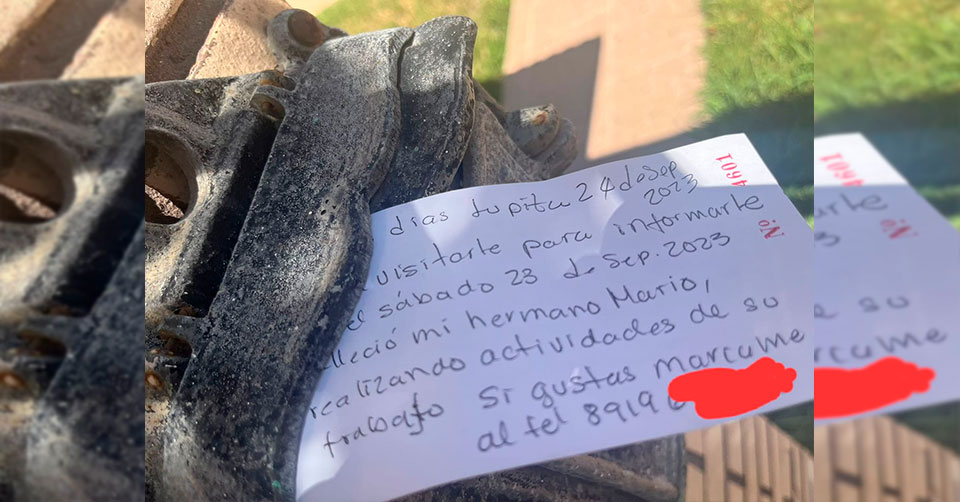 días Lupita 24 de Sep
2023
visitarte para informarte
el sábado 23 de Sep. 2023
lleció mi hermano Mario,
realizando actividades de su
trabajo si gustas marcame
al tel 8919
Nº 4601